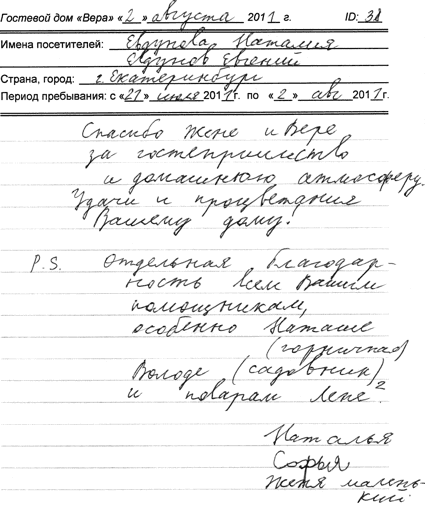 Гостевой дом «Вера» «2» августа 2011 г. ID: 38
Имена посетителей: Евдунова Наталия
Евдунов Евгений
Страна, город: г. Екатеринбург
Период пребывания: с «21» июля 2011г. по «2» авг 2011г.
Спасибо Жене и Вере
за гостеприимство
и домашнюю атмосферу.
Удачи и процветания
Вашему дому!
P.S. Отдельная благодар-
ность всем Вашим
помощникам,
особенно Наташе
(горничная)
Володе (садовник)
и поварам Лене²
Наталья
Софья
Женя малень-
кий.